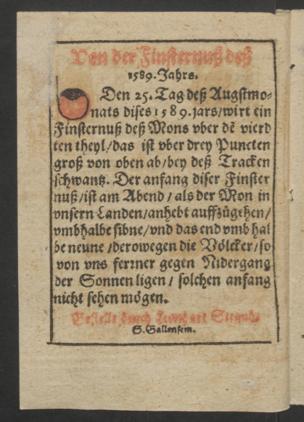 Von der Finsternuß deß
1589. Jahrs.
Den 25. Tag deß Augstmo-
nats dises 1589. jars/wirt ein
Finsternuß deß Mons vber dē vierd
ten theyl/das ist vber drey Puncten
groß von oben ab/bey deß Tracken
schwantz. Der anfang diser Finster
nuß/ist am Abend/als der Mon in
vnsern Landen/anhebt auffzůgehen/
vmb halbe sibne/vnd das end vmb hal
be neune/derowegen die Völcker/so
von vns ferrner gegen Nidergang
der Sonnen ligen/solchen anfang
nicht sehen mögen.
durch Leonhart Straub
S. Gallensem.